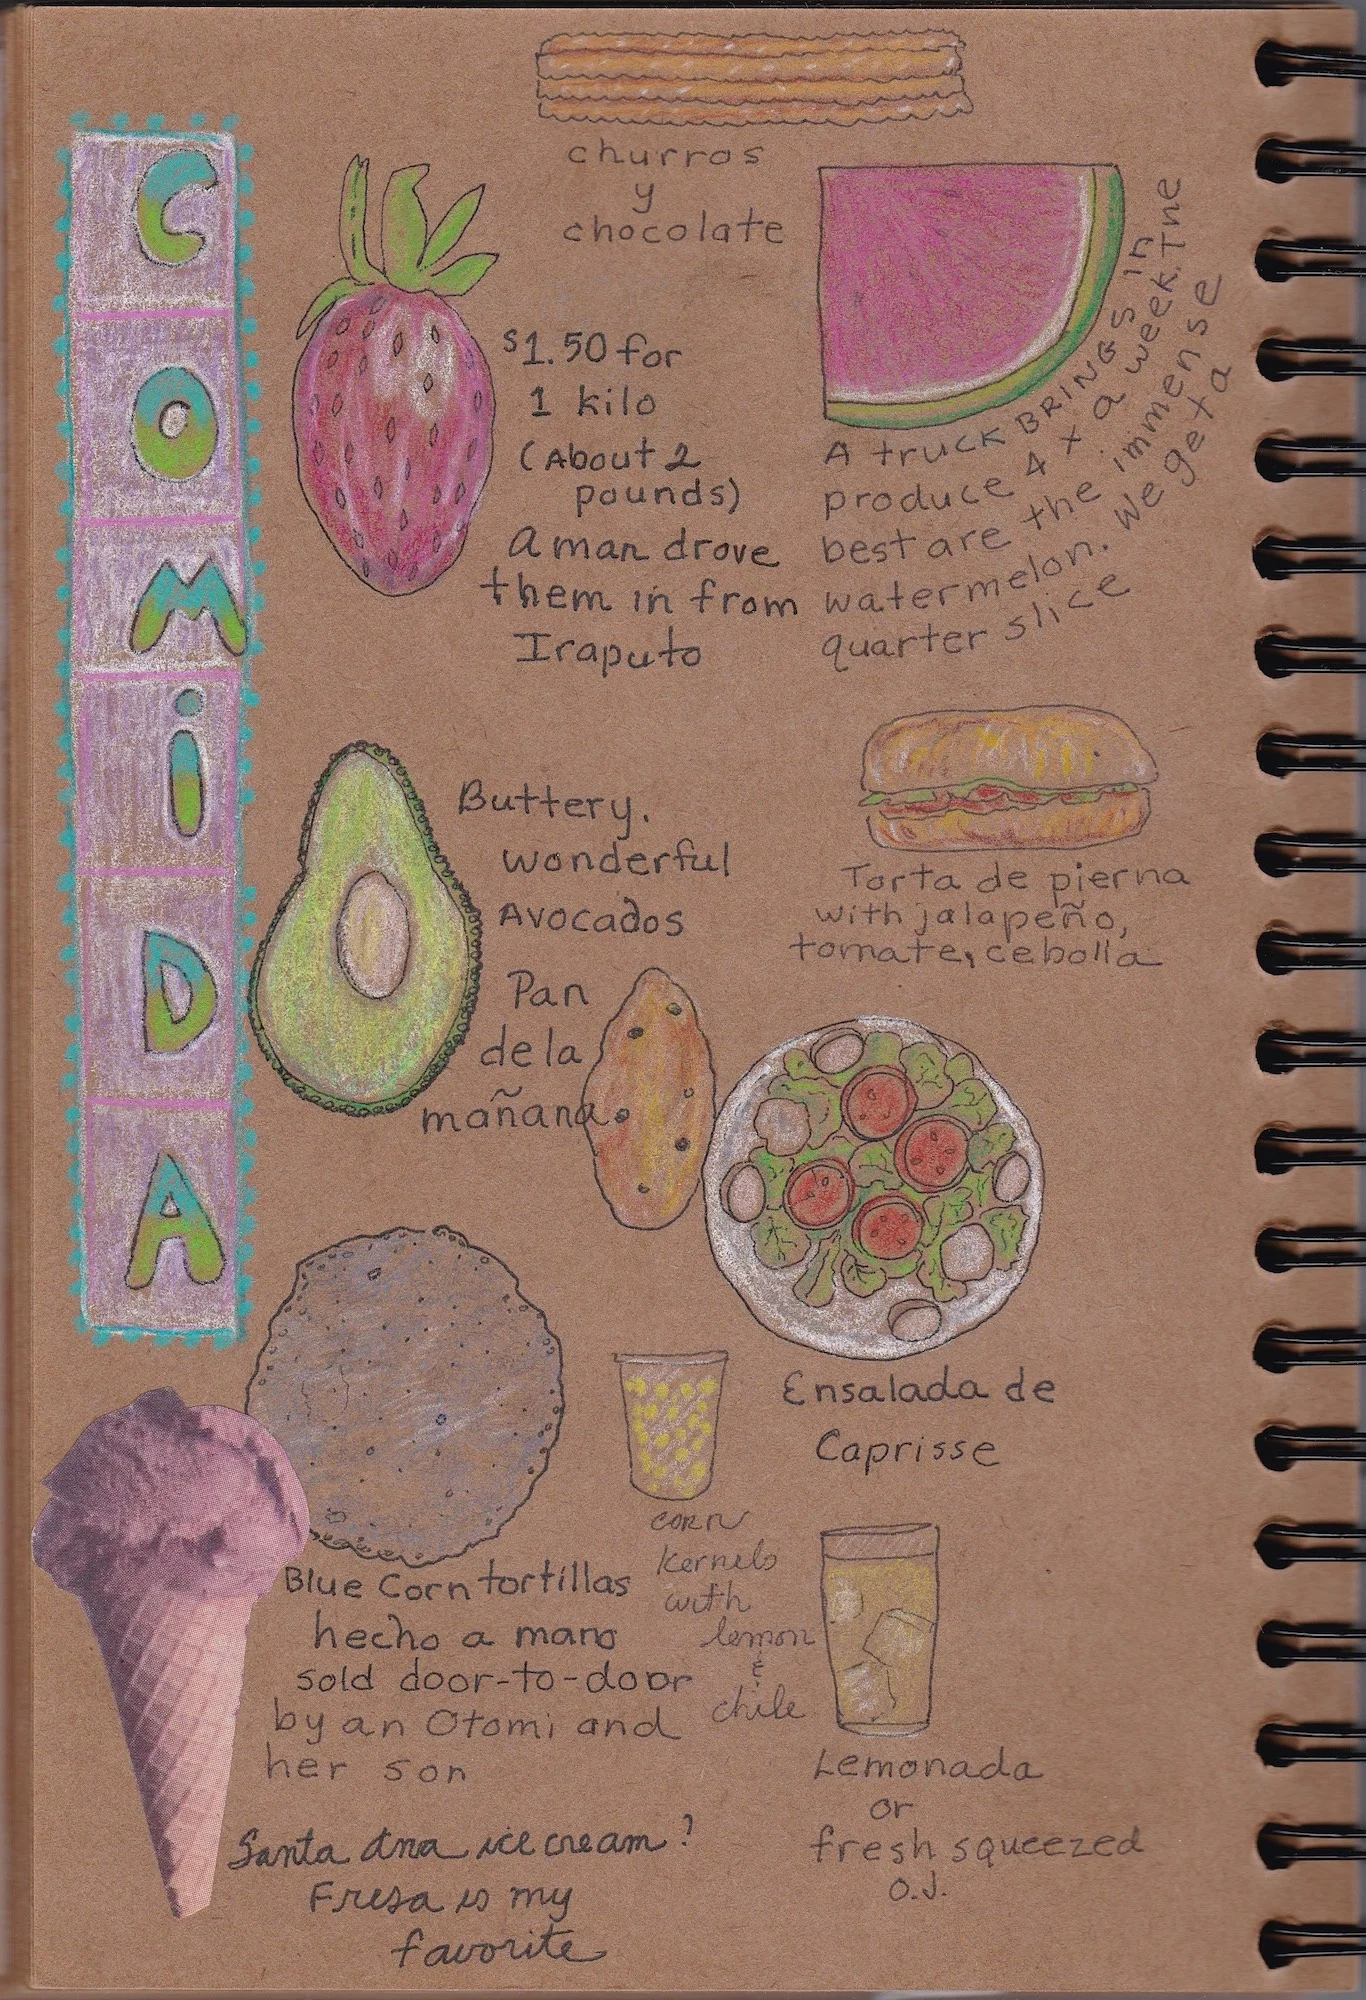 COMiDA
churros
y
chocolate
$1.50 for
1 kilo
(About 2
pounds)
A man drove
them in from
Iraputo
A truck BRINGS in
produce 4 x a week. The
best are the immense
watermelon. We get a
quarter slice
Buttery,
wonderful
Avocados
Torta de pierna
with jalapeño,
tomate, cebolla
Pan
de la
mañana
Ensalada de
Caprisse
corn
kernels
with
lemon
&
chile
Blue Corn tortillas
hecho a mano
sold door-to-door
by an Otomi and
her son
Lemonada
or
fresh squeezed
O.J.
Santa Ana ice cream!
Fresa is my
favorite